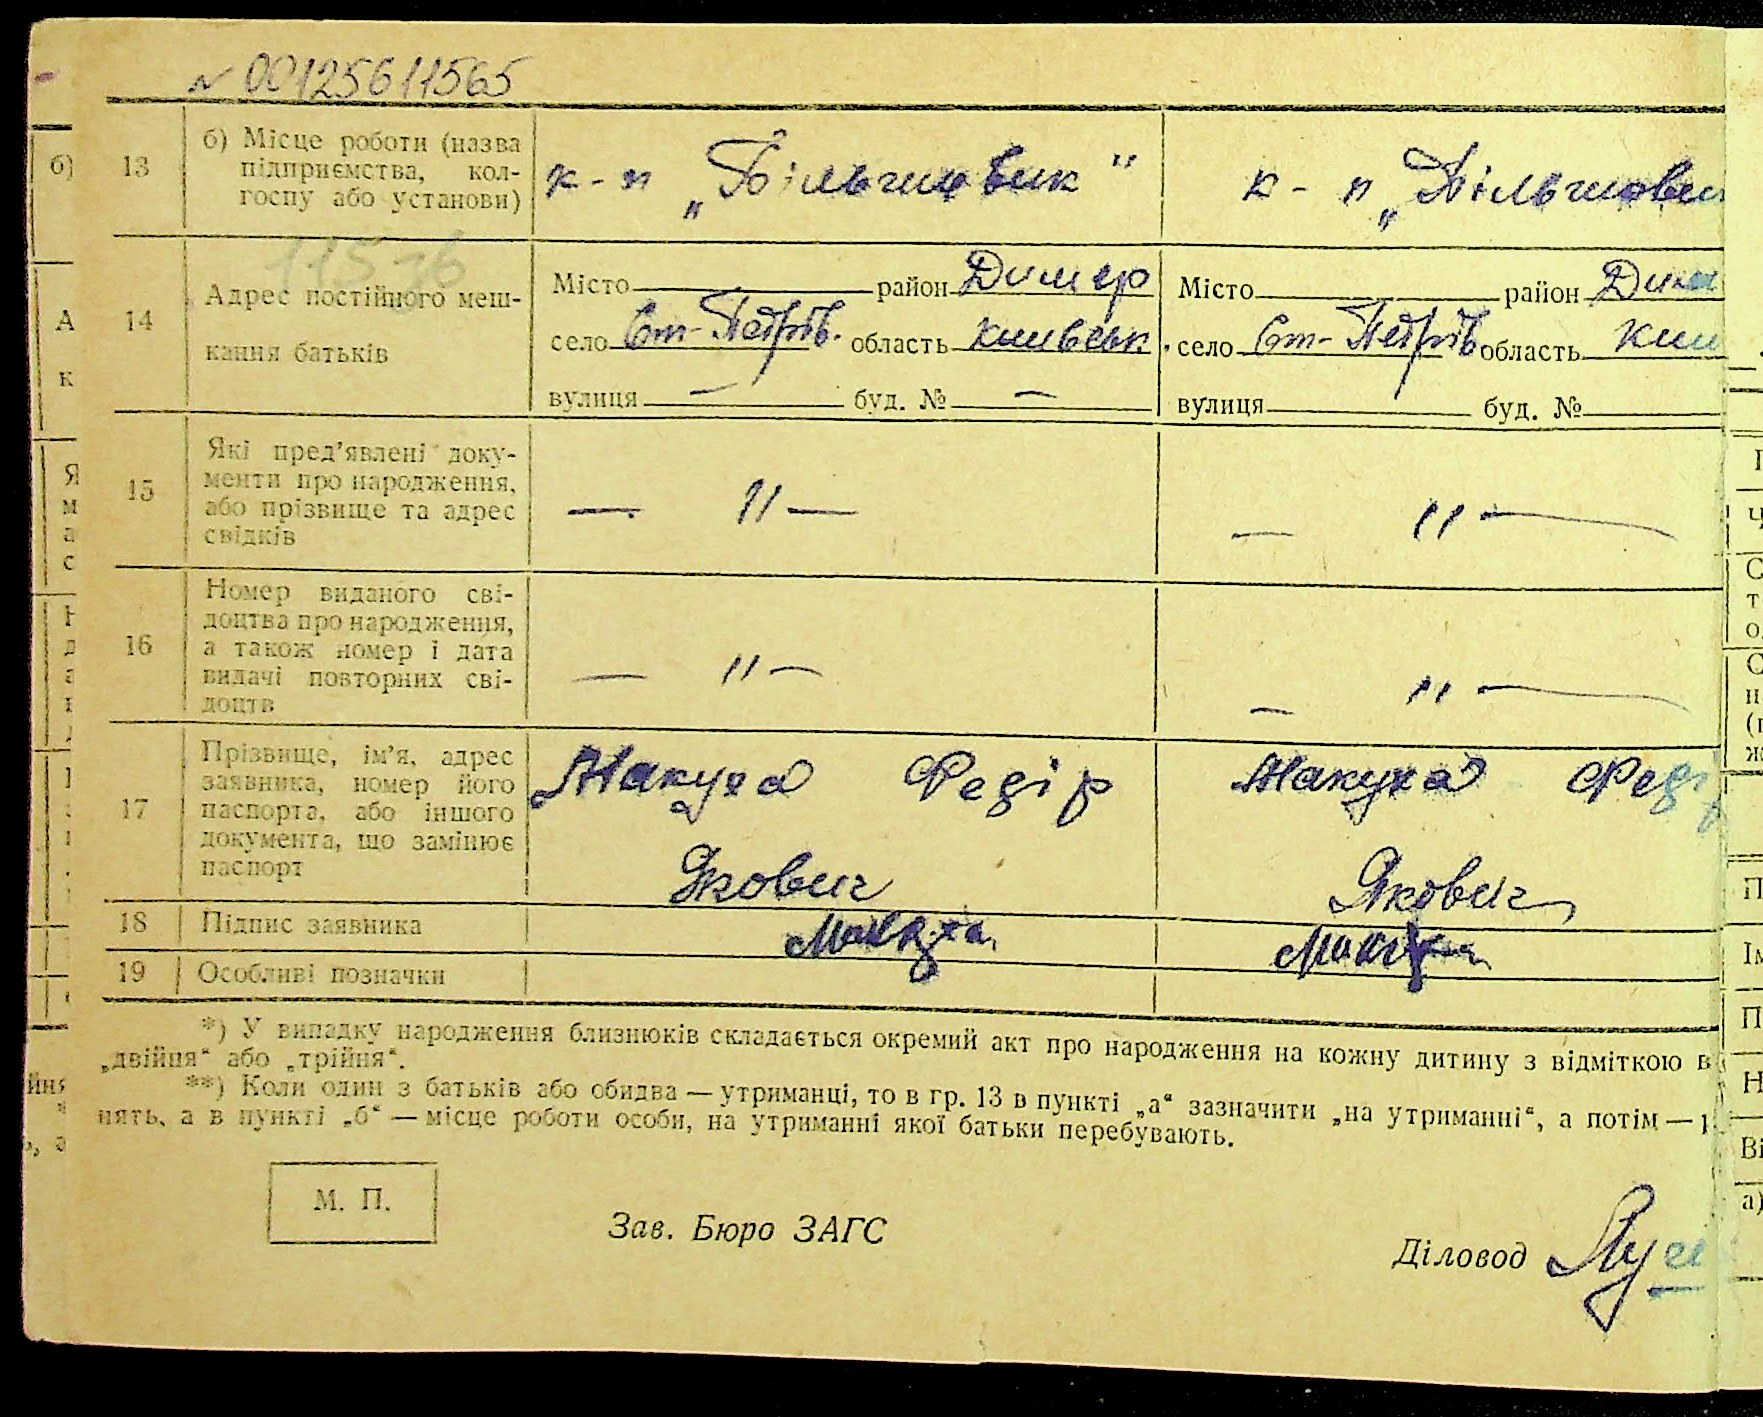 № 00125611565
13 б) Місце роботи (назва підприємства, колгоспу або установи) к-п „Більшовик" к-п „Більшови
115 зб
14 Адрес постійного меш-
кання батьків
Місто район Димер Місто район Дим
село Ст-Петрів. область Київськ. село Ст-Петрів область Київ
вулиця — буд. № — вулиця буд. №
15 Які пред'явлені доку-
менти про народження,
або прізвище та адрес
свідків
— 〃 — — 〃 —
16 Номер виданого сві-
доцтва про народження,
а також номер і дата
видачі повторних сві-
доцтв
— 〃 — — 〃 —
17 Прізвище, ім'я, адрес
заявника, номер його
паспорта, або іншого
документа, що замінює
паспорт
Макуха Федір Макуха Федір
Якович Якович
18 Підпис заявника Макуха Макуха
19 Особливі позначки
*) У випадку народження близнюків складається окремий акт про народження на кожну дитину з відміткою в
„двійня“ або „трійня“.
**) Коли один з батьків або обидва — утриманці, то в гр. 13 в пункті „а“ зазначити „на утриманні“, а потім —
нять, а в пункті „б“ — місце роботи особи, на утриманні якої батьки перебувають.
М. П.
Зав. Бюро ЗАГС
Діловод